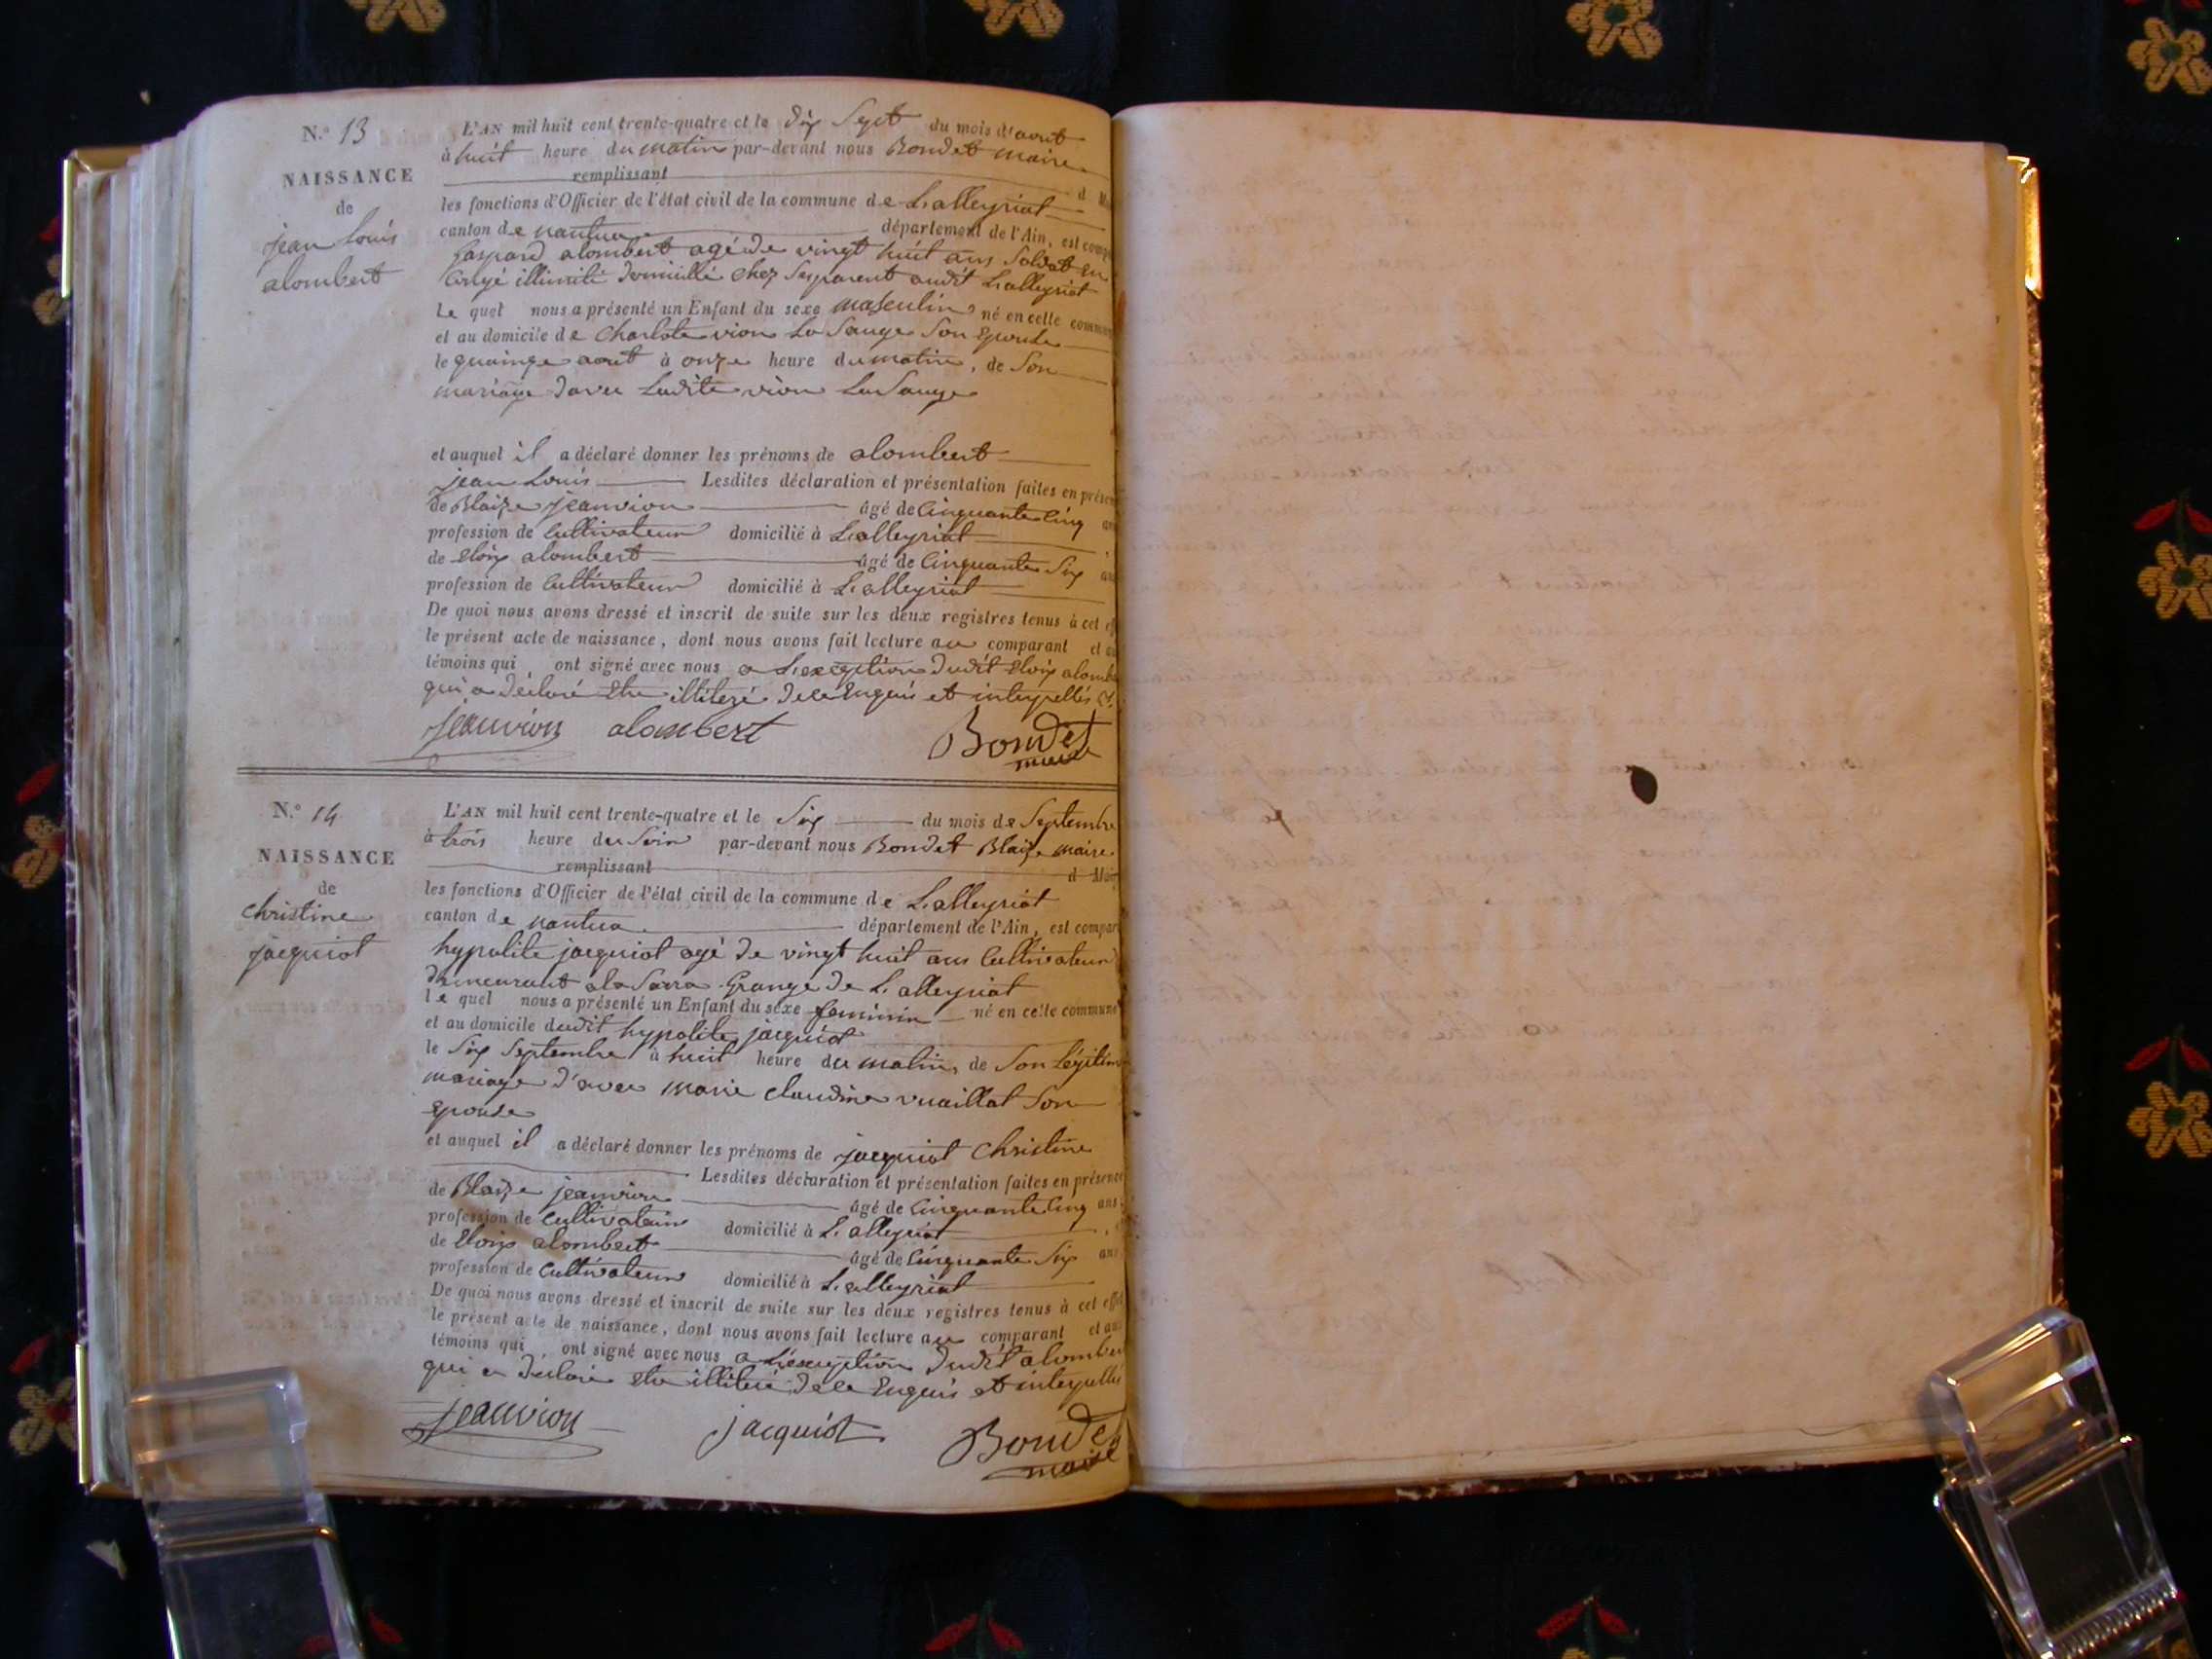 N.º 13
NAISSANCE
de
jean Louis
alombert
L'AN mil huit cent trente-quatre et le dix Sept du mois d'aout
à huit heure du matin par-devant nous Bondet maire
remplissant d
les fonctions d'Officier de l'état civil de la commune de L'alleyriat
canton de nantua département de l'Ain, est comp
gaspard alombert agé de vingt huit ans Soldat en
Congé illimité domicillé chez Sesparent audit L'alleyriat
le quel nous a présenté un Enfant du sexe masculin né en cette commun
et au domicile de Charlote vion La Sauge Son Epouse
le quainze aout à onze heure du matin, de Son
mariage davec Ladite vion La Sauge
et auquel il a déclaré donner les prénoms de alombert
jean Louis Lesdites déclaration et présentation faites en présen
de Blaize jeanvion âgé de Cinquante Cinq an
profession de Cultivateur domicilié à L'alleyriat
de Eloix alombert âgé de Cinquante Six an
profession de Cultivateur domicilié à L'alleyriat
De quoi nous avons dressé et inscrit de suite sur les deux registres tenus à cet ef
le présent acte de naissance, dont nous avons fait lecture au comparant et au
témoins qui ont signé avec nous a L'exception dudit Eloix alomb
qui a déclaré Etre illiteré de ce Enquis et interpellés
jeanvion alombert Bondet
maire
N.º 14
NAISSANCE
de
christine
jacquiot
L'AN mil huit cent trente-quatre et le Six du mois de Septembre
à trois heure du Soir par-devant nous Bondet Blaize maire
remplissant d Mai
les fonctions d'Officier de l'état civil de la commune de L'alleyriat
canton de nantua département de l'Ain, est compar
hypolite jacquiot agé de vingt huit ans Cultivateur
demeurant a la Sarra Grange de L'alleyriat
le quel nous a présenté un Enfant du sexe feminin né en cette commune
et au domicile dudit hypolite jacquiot
le Six Septembre à huit heure du matin, de Son Légitim
mariage d'avec marie claudine vuaillat Son
Epouse
et auquel il a déclaré donner les prénoms de jacquiot Christine
Lesdites déclaration et présentation faites en présence
de Blaize jeanvion âgé de Cinquante Cinq ans
profession de Cultivateur domicilié à L'alleyriat
de Eloix alombert âgé de Cinquante Six ans
profession de Cultivateur domicilié à L'alleyriat
De quoi nous avons dressé et inscrit de suite sur les deux registres tenus à cet effet
le présent acte de naissance, dont nous avons fait lecture au comparant et aux
témoins qui ont signé avec nous a L'exception dudit alomber
qui a declaré etre illiteré de ce Enquis et interpellé
jeanvion jacquiot Bondet
maire